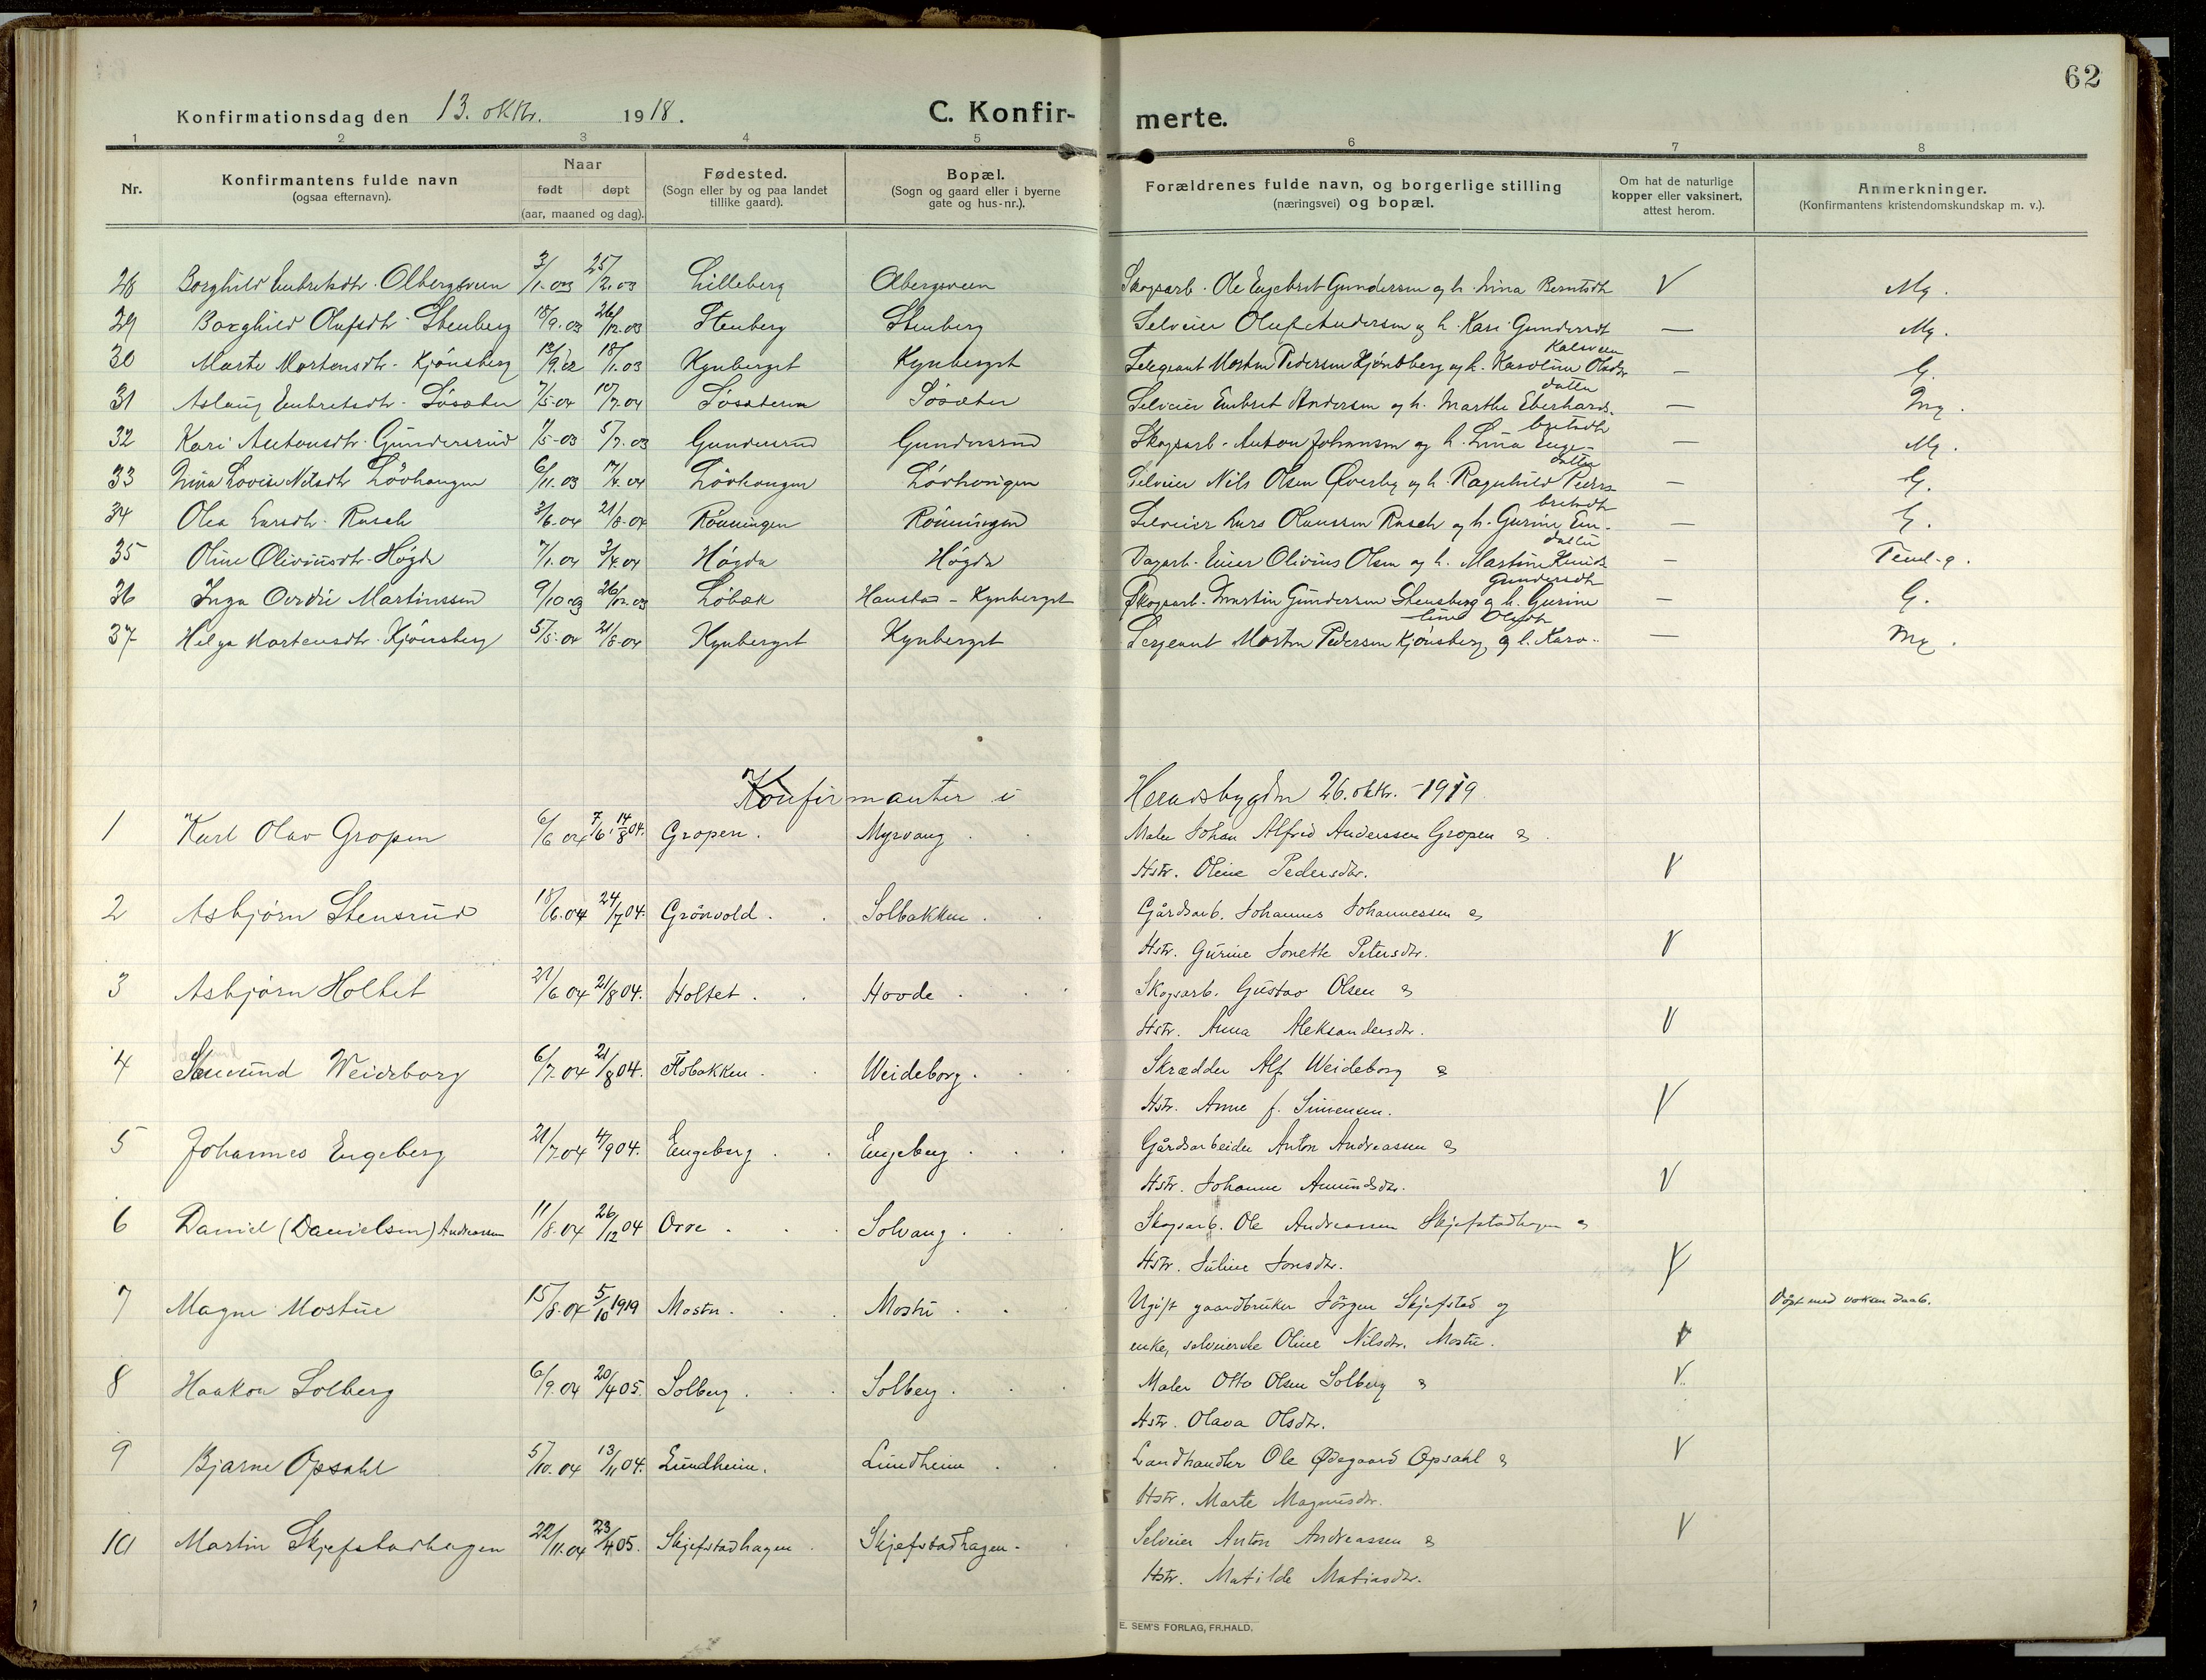 62
Konfirmationsdag den 13. oktr. 1918.
C. Konfir- merte.
1 2 3 4 5 6 7 8
Nr.
Konfirmantens fulde navn
(ogsaa efternavn).
Naar
født døpt
(aar, maaned og dag).
Fødested.
(Sogn eller by og paa landet
tillike gaard).
Bopæl.
(Sogn og gaard eller i byerne
gate og hus-nr.).
Forældrenes fulde navn, og borgerlige stilling
(næringsvei) og bopæl.
Om hat de naturlige
kopper eller vaksinert,
attest herom.
Anmerkninger.
(Konfirmantens kristendomskundskap m. v.).
28 Borghild Embretsdtr. Olbergsveen 3/1-03 25/2.03 Lilleberg Olbergsveen Skogsarb. Ole Engebret Gundersen og h. Lina Berntsdtr V Mg.
29 Borghild Olufsdtr. Stenberg 18/9.03 26/12.03 Stenberg Stenberg Selveier Oluf Andersen og h. Kari Gundersdt — Mg.
30 Marte Mortensdtr. Kjønsberg 13/9.02 18/1.03 Kynberget Kynberget Sergeant Morten Pedersen Kjønsberg og h. Karoline Olsdtr Kalsveen — G.
31 Aslaug Embretsdtr. Løsæter 7/5-04 10/7-04 Løsæteren Løsæter Selveier Embret Andersen og h. Marthe Eberhards- datter — Mg.
32 Kari Antonsdtr. Gundersrud 7/5-03 5/7-03 Gundersrud Gundersrud Skogsarb. Anton Johansen og h. Lina Enge- bretsdtr — Mg.
33 Lina Lovise Nilsdtr Løvhaugen 6/11.03 17/4.04 Løvhaugen Løvhaugen Selveier Nils Olsen Øverby og h. Ragnhild Peders- datter — G.
34 Olea Larsdtr. Rasch 3/6-04 21/8-04 Rønningen Rønningen Selveier Lars Olaussen Rasch og h. Gurine Em- bretsdtr — G.
35 Oline Oliviusdtr. Høgda 7/1.04 3/4.04 Høgda Høgda Dagarb. Einar Olivius Olsen og h. Martine Knuds- datter — Temel.g.
36 Inga Ovidie Martinssen 9/10-03 26/12.03 Løbæk Haustad - Kynberget Skogsarb. Martin Gundersen Stensberg og h. Gurine Gundersdtr — G.
37 Helga Mortensdtr. Kjønsberg 5/5-04 21/8-04 Kynberget Kynberget Sergeant Morten Pedersen Kjønsberg og h. Karo- line Olsdtr — Mg.
Konfirmanter i Heradsbygden 26. oktr. - 1919
1 Karl Olav Gropen 6/6 04 7/6. 14/8 04. Gropen. Myrvang. Maler Johan Alfred Anderssen Gropen &
Hstr. Oline Pedersdtr. V
2 Asbjørn Stensrud 18/6.04 24/7 04. Grönvold. Solbakken. Gårdsarb. Johannes Johannessen &
Hstr. Gurine Jonette Petersdtr. V
3 Asbjørn Holtet 21/6 04 21/8 04. Holtet. Hovde. Skogsarb. Gustav Olsen &
Hstr. Anna Aleksandersdtr. V
4 Weideborg 6/7.04 21/8 04. Flobakken. Weideborg. Skrædder Alf Weideborg &
Hstr. Anne f. Simensen. V
5 Johannes Engeberg 21/7.04 4/9 04. Engeberg. Engeberg. Gårdsarbeider Anton Andreassen &
Hstr. Johanne Amundsdtr. V
6 Daniel (Danielsen) Andreassen 11/8.04 26/12 04 Orre. Solvang. Skogsarb. Ole Andreassen Skjefstadhagen &
Hstr. Juline Jonsdtr. V
7 Magne Mostue 15/8.04 5/10 1919 Mostu. Mostu. Ugift gaardbruker Jörgen Skjefstad og
enke, selveierske Oline Nilsdtr. Mostu. V Døpt med voksen daab.
8 Haakon Solberg 6/9.04 20/4 05. Solberg. Solberg. Maler Otto Olsen Solberg & V
Hstr. Olava Olsdtr.
9 Bjarne Opsahl 5/10.04 13/11 04. Lundheim. Lundheim Landhandler Ole Ødegaard Opsahl & V
Hstr. Marte Magnusdtr.
10 Martin Skjefstadhagen 22/11.04 23/4 05. Skjefstadhagen. Skjefstadhagen. Selveier Anton Andreassen & V
Hstr. Matilde Matiasdtr.
E. SEM'S FORLAG, FR.HALD.